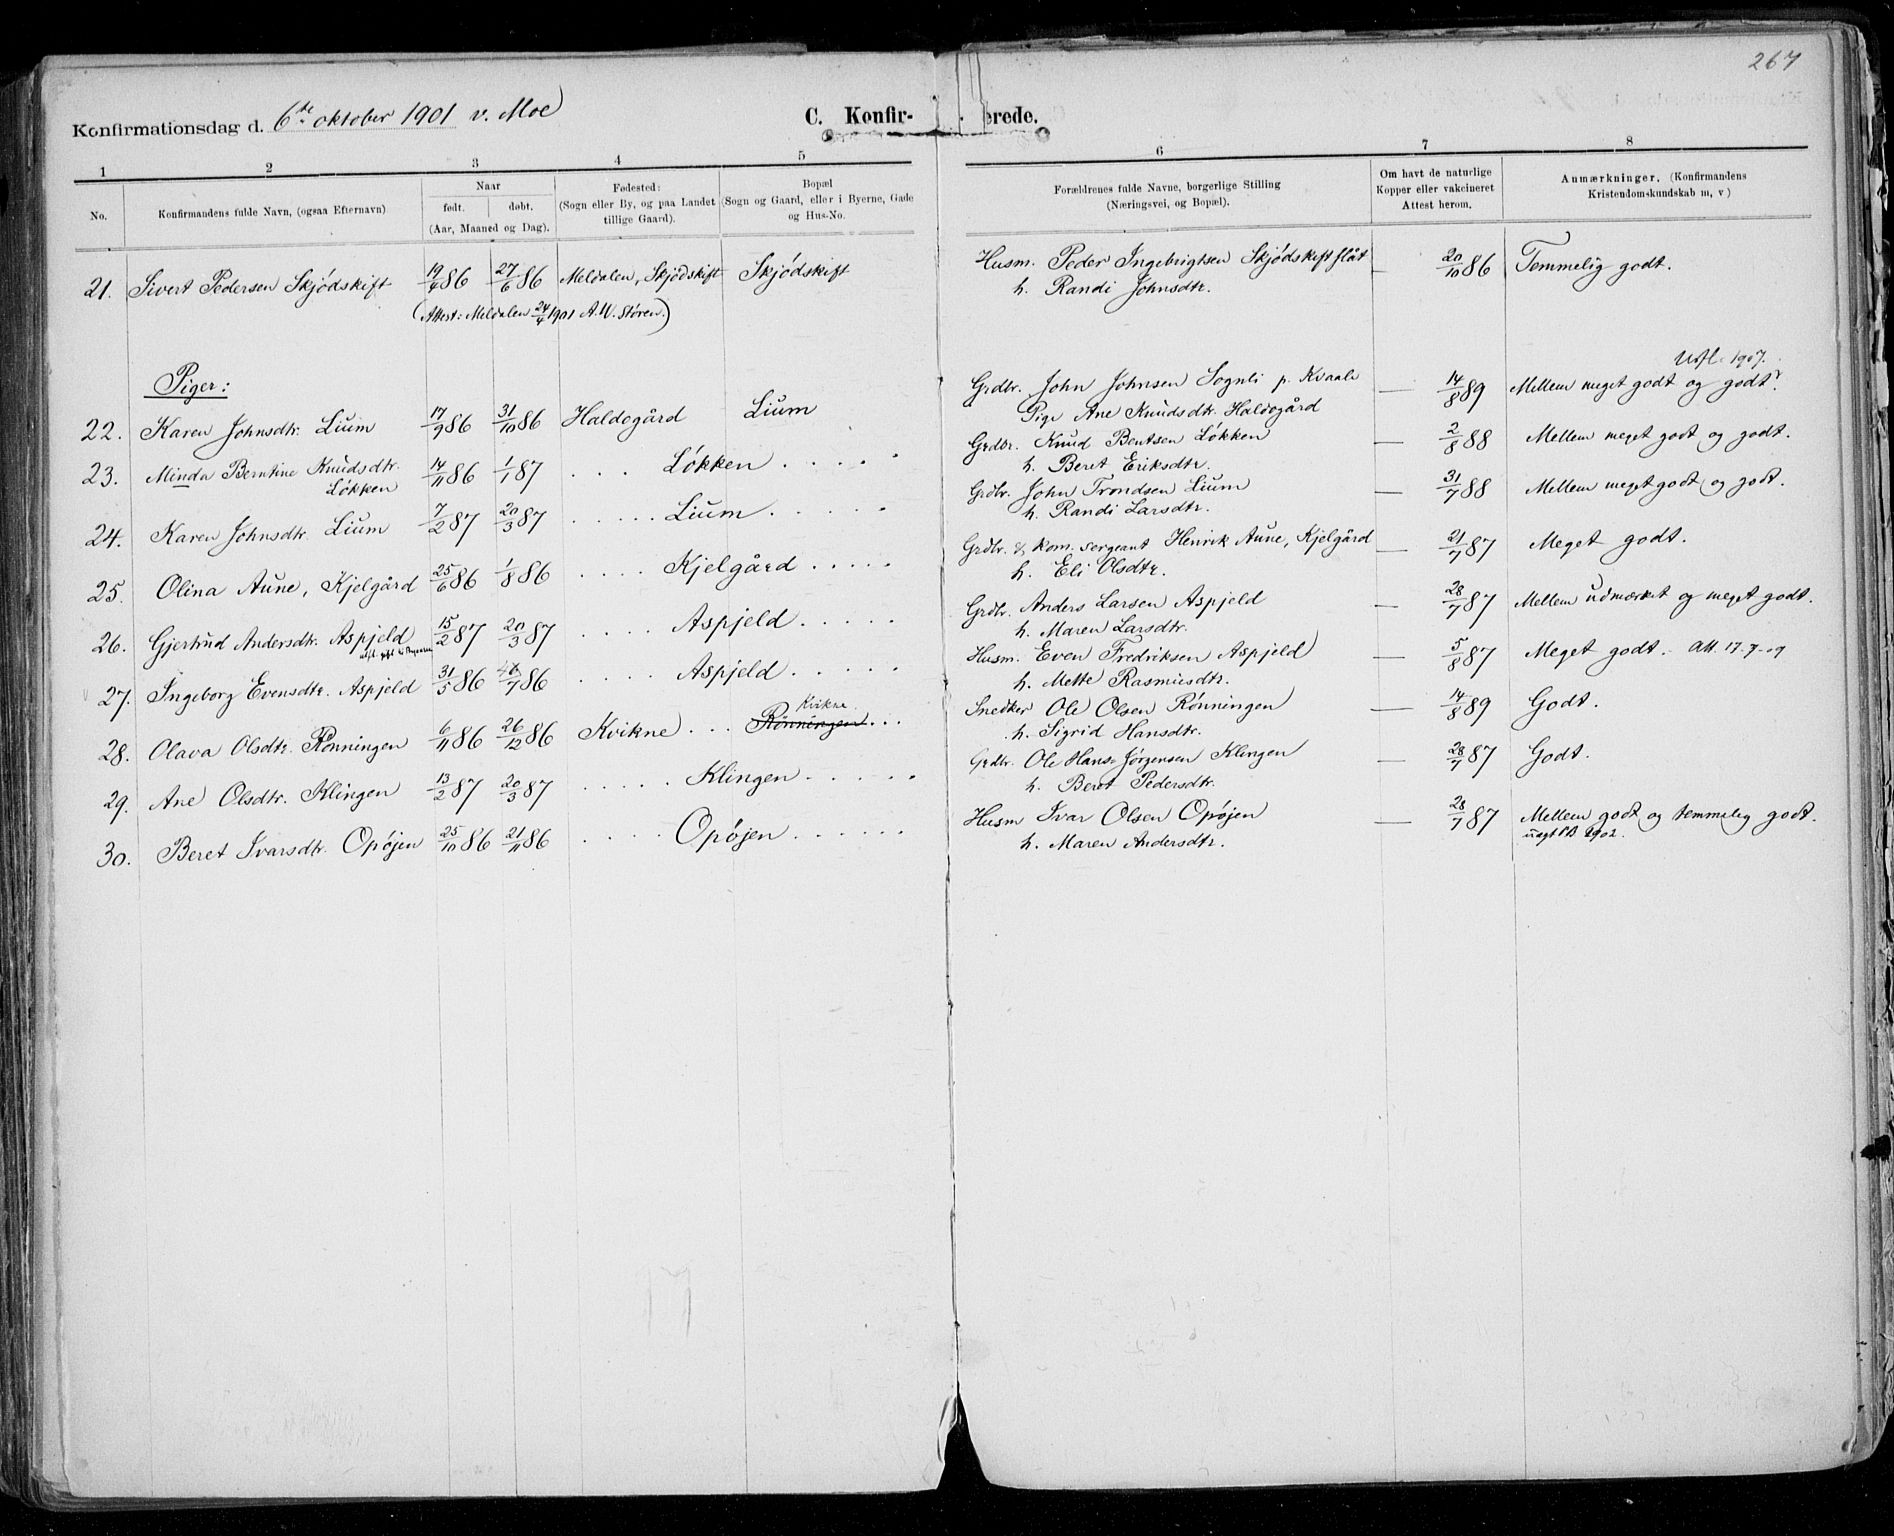 267
Konfirmationsdag d. 6te oktober 1901 v. Moe
C. Konfir- erede.
1 2 3 4 5 6 7 8
No.
Konfirmandens fulde Navn, (ogsaa Efternavn)
Naar
født. døbt.
(Aar, Maaned og Dag).
Fødested:
(Sogn eller By, og paa Landet
tillige Gaard).
Bopæl
(Sogn og Gaard, eller i Byerne, Gade
og Hus-No.
Forældrenes fulde Navne, borgerlige Stilling
(Næringsvei, og Bopæl).
Om havt de naturlige
Kopper eller vakcineret
Attest herom.
Anmærkninger. (Konfirmandens
Kristendomskundskab m, v)
21. Sivert Pedersen Skjødskift 19/6 86 27/6 86 Meldalen, Skjødskift Skjødskift Husm. Peder Ingebrigtsen Skjødskiftflåt — 20/10 86 Temmelig godt.
h. Randi Johnsdtr.
(Attest: Meldalen 24/4 1901 A. W. Støren.)
Piger:
Utfl. 1907.
22. Karen Johnsdtr. Lium 17/9 86 31/10 86 Haldogård Lium Grdbr. John Johnsen Sognli p. Kvaale — 14/8 89 Mellem meget godt og godt.
Pige Ane Knudsdtr. Haldogård
23. Minda Berntine Knudsdtr. 14/11 86 1/1 87 . . . Løkken . . . . Grdbr. Knud Bentsen Løkken — 2/8 88 Mellem meget godt og godt.
Løkken h. Beret Eriksdtr.
24. Karen Johnsdtr. Lium 7/2 87 20/3 87 . . . . . Lium . . . . . Grdbr. John Trondsen Lium — 31/7 88 Mellem meget godt og godt.
h. Randi Larsdtr.
25. Olina Aune, Kjelgård 25/6 86 1/8 86 . . . . Kjelgård . . . . . Grdbr. & kom. sergeant Henrik Aune, Kjelgård — 21/7 87 Meget godt.
h. Eli Olsdtr.
26. Gjertrud Andersdtr. Aspjeld 15/2 87 20/3 87 . . . . Aspjeld . . . . . Grdbr. Anders Larsen Aspjeld — 28/7 87 Mellem udmærket og meget godt.
h. Maren Larsdtr.
27. Ingeborg Evensdtr. Aspjeld 31/5 86 /7 86 . . . . Aspjeld . . . . Husm. Even Fredriksen Aspjeld — 5/8 87 Meget godt. Att. 17-7-09
h. Mette Rasmusdtr.
Kvikne.
28. Olava Olsdtr. Rønningen 6/11 86 26/12 86 Kvikne . . . Rønningen . . . Snedker Ole Olsen Rønningen — 14/8 89 Godt.
h. Sigrid Hansdtr.
29. Ane Olsdtr. Klingen 13/2 87 20/3 87 . . . . . Klingen . . . . . Grdbr. Ole Hans-Jørgensen Klingen — 28/7 87 Godt.
h. Beret Pedersdtr.
30. Beret Ivarsdtr. Opøjen 25/10 86 21/11 86 . . . . Opøjen . . . . . . Husm Ivar Olsen Opøjen — 28/7 87 Mellem godt og temmelig godt.
h. Maren Andersdtr. 1902.